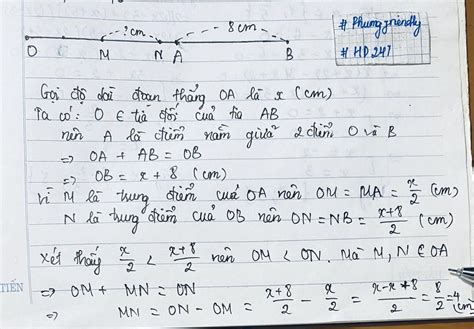 ?cm 8cm
O M N A B
# Phungfriendly
# HD247
Gọi độ dài đoạn thẳng OA là x (cm)
Ta có: O ∈ tia đối của tia AB
nên A là điểm nằm giữa 2 điểm O và B
⇒ OA + AB = OB
⇒ OB = x + 8 (cm)
Vì M là trung điểm của OA nên OM = MA = x/2 (cm)
N là trung điểm của OB nên ON = NB = x+8/2 (cm)
Xét thấy x/2 < x+8/2 nên OM < ON. Mà M, N ∈ OA
⇒ OM + MN = ON
⇒ MN = ON - OM = x+8/2 - x/2 = x-x+8/2 = 8/2 = 4 (cm)
TIẾN